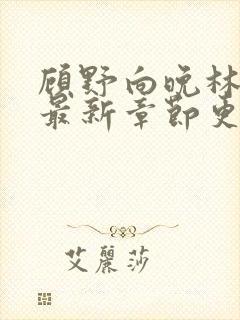 顾野向晚林
最新章节更
艾麗莎